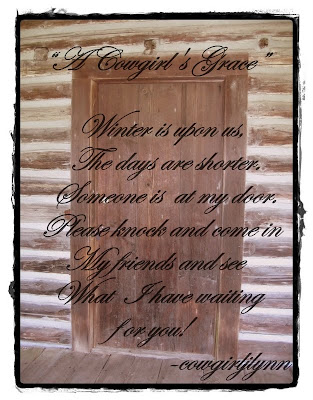 "A Cowgirl's Grace"
Winter is upon us.
The days are shorter.
Someone is at my door.
Please knock and come in
My friends and see
What I have waiting
for you!
-cowgirljlynn